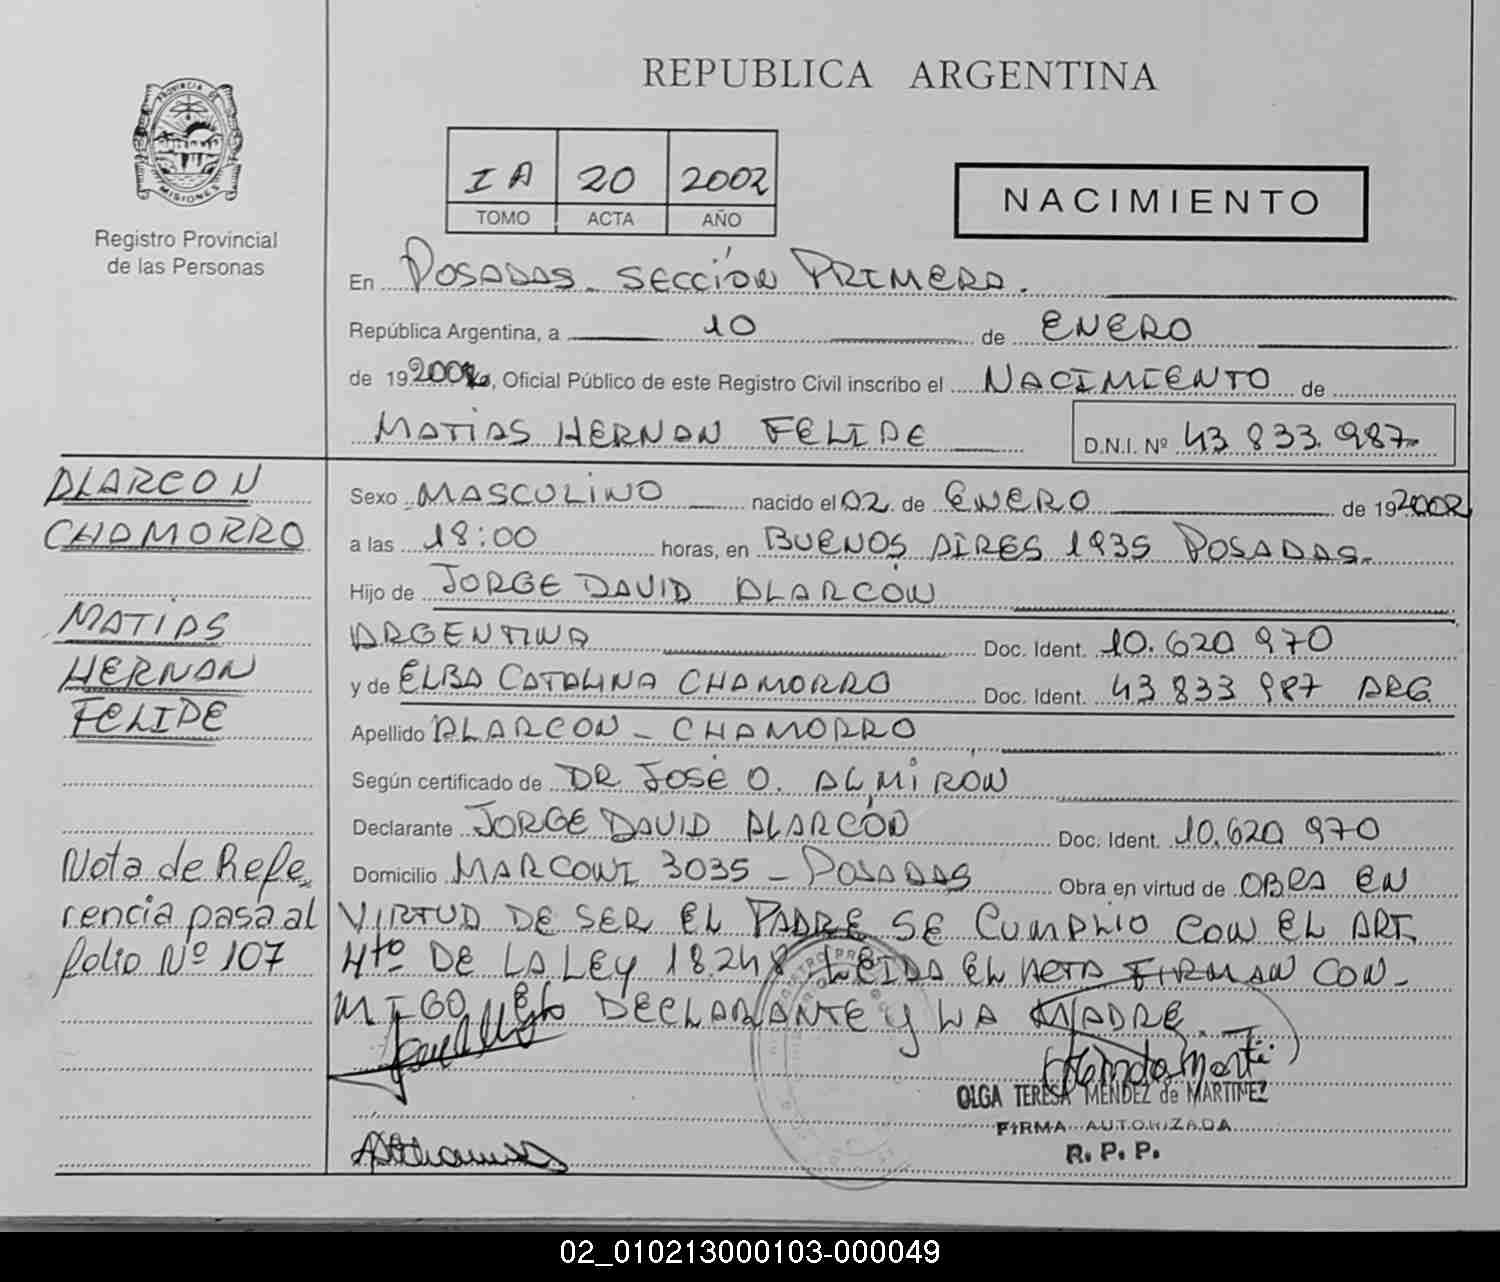 REPUBLICA ARGENTINA
PROVINCIA DE
MISIONES
Registro Provincial
de las Personas
IA 20 2002
TOMO ACTA AÑO
NACIMIENTO
En POSADAS - SECCIÓN PRIMERA.
República Argentina, a 10 de ENERO
de 19 2002, Oficial Público de este Registro Civil inscribo el NACIMIENTO de
MATIAS HERNAN FELIPE D.N.I. Nº 43 833.987
ALARCON
CHAMORRO
MATIAS
HERNAN
FELIPE
Nota de Refe
rencia pasa al
folio Nº 107
Sexo MASCULINO nacido el 02 de ENERO de 19 2002
a las 18:00 horas, en BUENOS AIRES 1935 POSADAS.
Hijo de JORGE DAVID ALARCÓN
ARGENTINA Doc. Ident. 10.620 970
y de ELBA CATALINA CHAMORRO Doc. Ident. 43 833 987 ARG.
Apellido ALARCON - CHAMORRO
Según certificado de DR JOSÉ O. ALMIRÓN
Declarante JORGE DAVID ALARCÓN Doc. Ident. 10.620 970
Domicilio MARCONI 3035 - POSADAS Obra en virtud de OBRA EN
VIRTUD DE SER EL PADRE SE CUMPLIO CON EL ART.
4to DE LA LEY 18.248 LEIDA EL ACTA FIRMAN CON-
MIGO EL DECLARANTE Y LA MADRE.
OLGA TERESA MENDEZ de MARTINEZ
FIRMA AUTORIZADA
R. P. P.
02_010213000103-000049